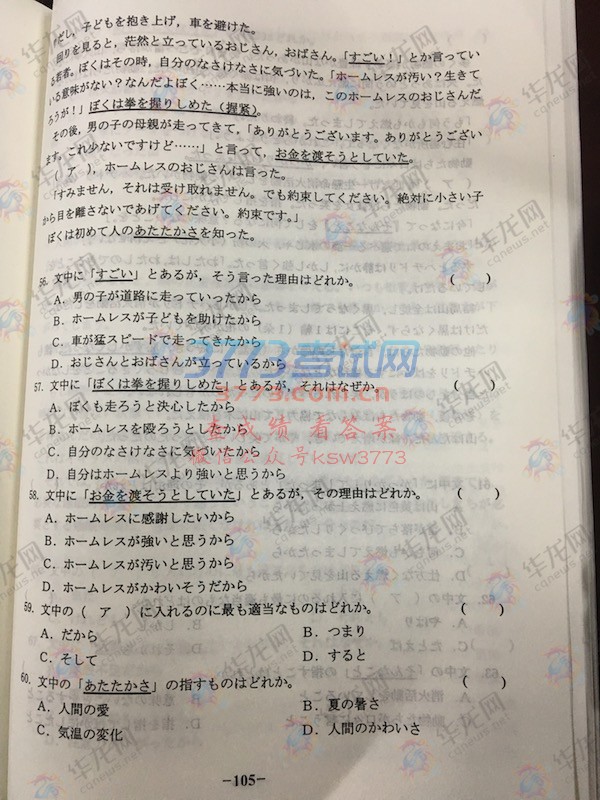 だし，子どもを抱き上げ，車を避けた。
回りを見ると，茫然と立っているおじさん，おばさん。「すごい！」とか言ってい
る若者。ぼくはその時，自分のなさけなさに気づいた。「ホームレスが汚い？生きて
いる意味がない？なんだよぼく……本当に強いのは，このホームレスのおじさんだ
ろうが！」ぼくは拳を握りしめた（握紧）。
その後，男の子の母親が走ってきて，「ありがとうございます。ありがとうござい
ます。これ少ないですけど……」と言って，お金を渡そうとしていた。
（ ア ），ホームレスのおじさんは言った。
「すみません，それは受け取れません。でも約束してください。絶対に小さい子
から目を離さないであげてください。約束です。」
ぼくは初めて人のあたたかさを知った。
56. 文中に「すごい」とあるが，そう言った理由はどれか。 （ ）
A．男の子が道路に走っていったから
B．ホームレスが子どもを助けたから
C．車が猛スピードで走ってきたから
D．おじさんとおばさんが立っているから
57. 文中に「ぼくは拳を握りしめた」とあるが，それはなぜか。 （ ）
A．ぼくも走ろうと決心したから
B．ホームレスを殴ろうとしたから
C．自分のなさけなさに気づいたから
D．自分はホームレスより強いと思うから
58. 文中に「お金を渡そうとしていた」とあるが，その理由はどれか。 （ ）
A．ホームレスに感謝したいから
B．ホームレスが強いと思うから
C．ホームレスが汚いと思うから
D．ホームレスがかわいそうだから
59. 文中の（ ア ）に入れるのに最も適当なものはどれか。 （ ）
A．だから B．つまり
C．そして D．すると
60. 文中の「あたたかさ」の指すものはどれか。 （ ）
A．人間の愛 B．夏の暑さ
C．気温の変化 D．人間のかわいさ
-105-
3773考试网
3773.com.cn
查成绩 看答案
微信公众号ksw3773
华龙网
cqnews.net